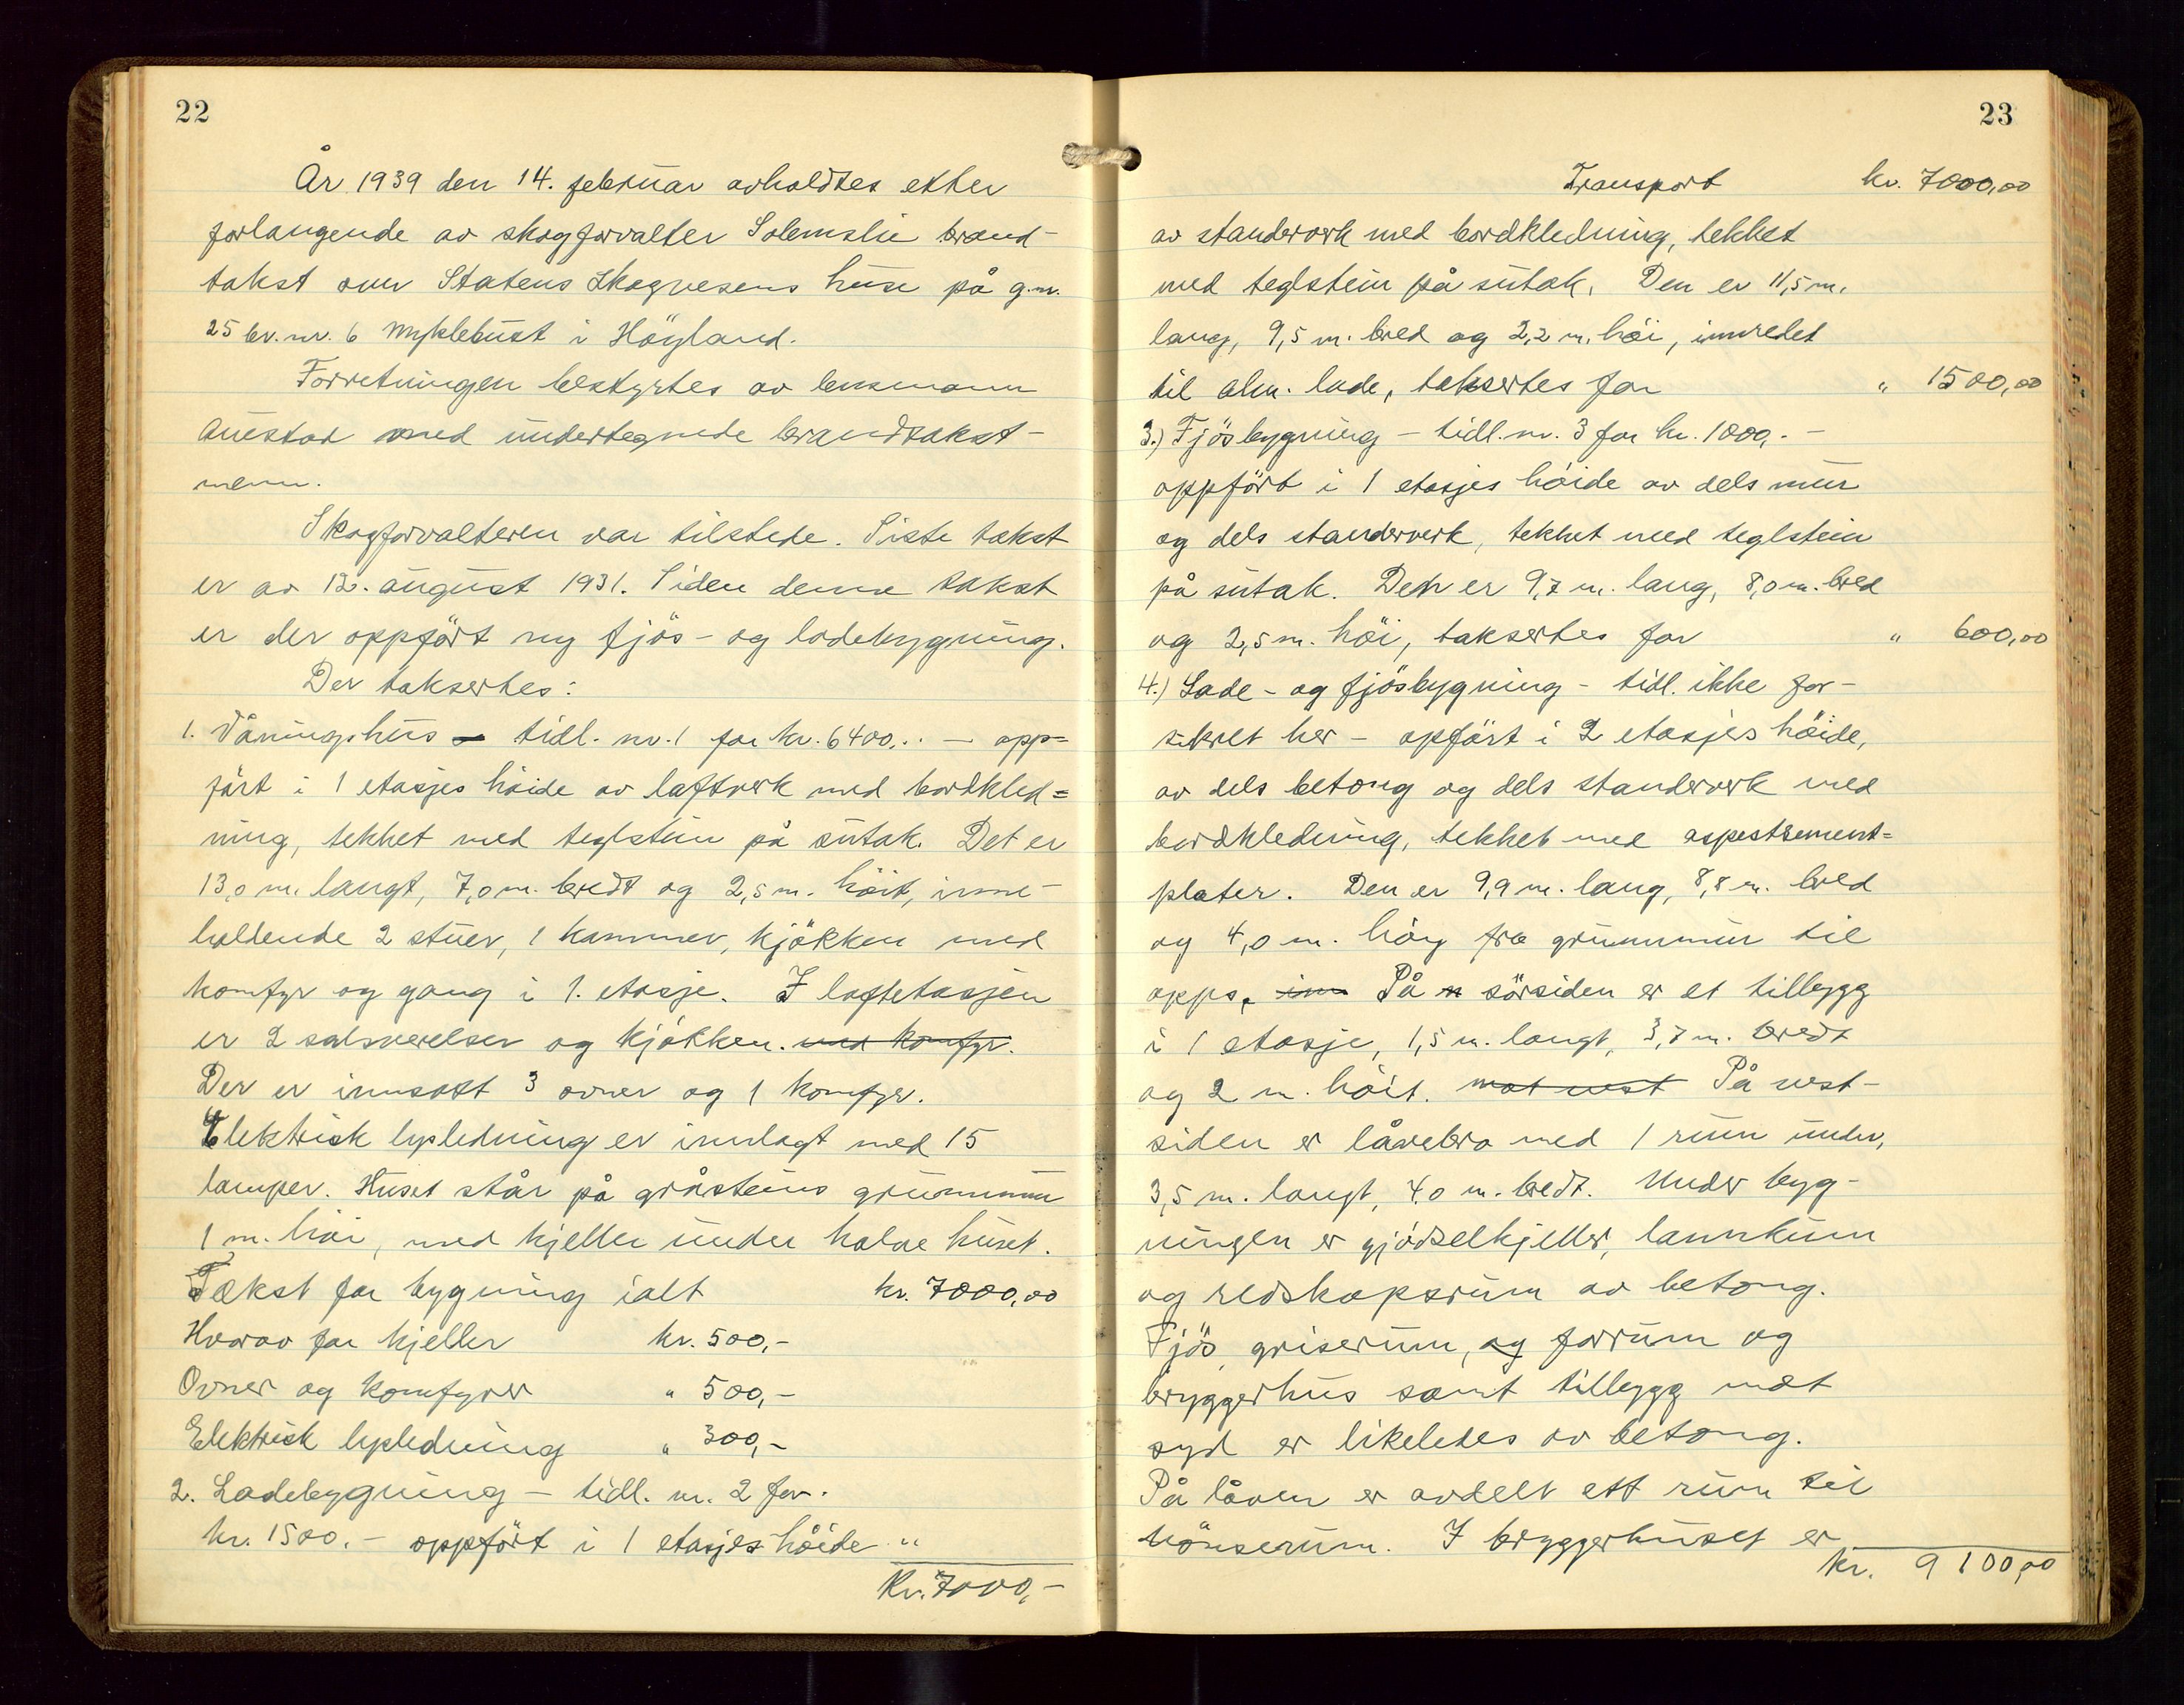 22
År 1939 den 14. februar avholdtes etter
forlangende av skogforvalter Solemslie brand-
takst over Statens Skogvesens huse på g.nr.
25 br.nr. 6 Myklebust i Höyland.
Forretningen bestyrtes av lensmann
Auestad med undertegnede brandtakst-
menn.
Skogforvalteren var tilstede. Siste takst
er av 12. august 1931. Siden denne takst
er der oppfört ny fjös- og ladebygning.
Der taksertes:
1. Våningshus - tidl. nr. 1 for kr. 6400,.- - opp=
fört i 1 etasjes höide av laftverk med bordkled=
ning, tekket med teglstein på sutak. Det er
13,0 m. langt, 7,0 m. bredt og 2,5 m. höit, inne-
holdende 2 stuer, 1 kammer, kjökken med
komfyr og gang i 1. etasje. I loftetasjen
er 2 soveværelser og kjökken. med komfyr.
Der er innsatt 3 ovner og 1 komfyr.
Elektrisk lysledning er innlagt med 15
lamper. Huset står på gråsteins grunnmur
1 m. höi, med kjeller under halve huset.
Takst for bygning ialt kr. 7000,00
Hvorav for kjeller kr. 500,-
Ovner og komfyrer " 500,-
Elektrisk lysledning " 300,-
2. Ladebygning - tidl. nr. 2 for
kr. 1500.- oppfört i 1 etasjes höide "
Kr. 7000,-
23
Transport kr. 7000,00
av standerverk med bordkledning, tekket
med teglstein på sutak. Den er 11,5 m.
lang, 9,5 m. bred og 2,2 m. höi, innredet
til alm. lade, taksertes for " 1500,00
3.) Fjösbygning - tidl. nr. 3 for kr. 1000,.-
oppfört i 1 etasjes höide av dels mur
og dels standerverk, tekket med teglstein
på sutak. Den er 9,7 m. lang, 8,0 m. bred
og 2,5 m. höi, taksertes for " 600,00
4.) Lade- og fjösbygning - tidl. ikke for-
sikret her - opfört i 2 etasjes höide,
av dels betong og dels standerverk med
bordkledning, tekket med aspestsement=
plater. Den er 9,9 m. lang, 8,8 m. bred
og 4,0 m. höy fra grunnmur til
opps. På sörsiden er et tillegg
i 1 etasje, 1,5 m. langt, 3,7 m. bredt
og 2 m. höit. mot vest På vest-
siden er låvebro med 1 rum under,
3,5 m. langt, 4.0 m. bredt. Under byg-
ningen er gjödselkjeller, lannkum
og redskapsrum av betong.
Fjös, griserum, og forrum og
bryggerhus samt tillegg mot
syd er likeledes av betong.
På låven er avdelt ett rum til
hönserum. I bryggerhuset er
kr. 9100,00